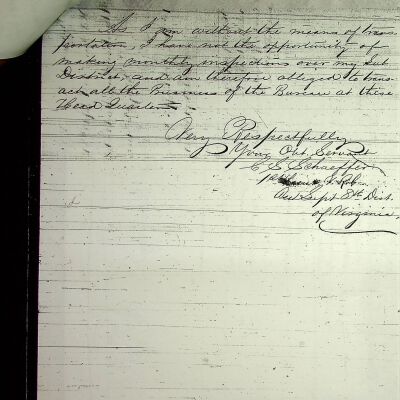 As I am without the means of trans
portation, I have not the opportunity of
making monthly inspections over my Sub
District, and am therefore obliged to trans-
act all the Business of the Bureau at these
Head Quarters
Very Respectfully
Your Obt Servant
C S Schaeffer
Sub
Dist.
of Virginia.